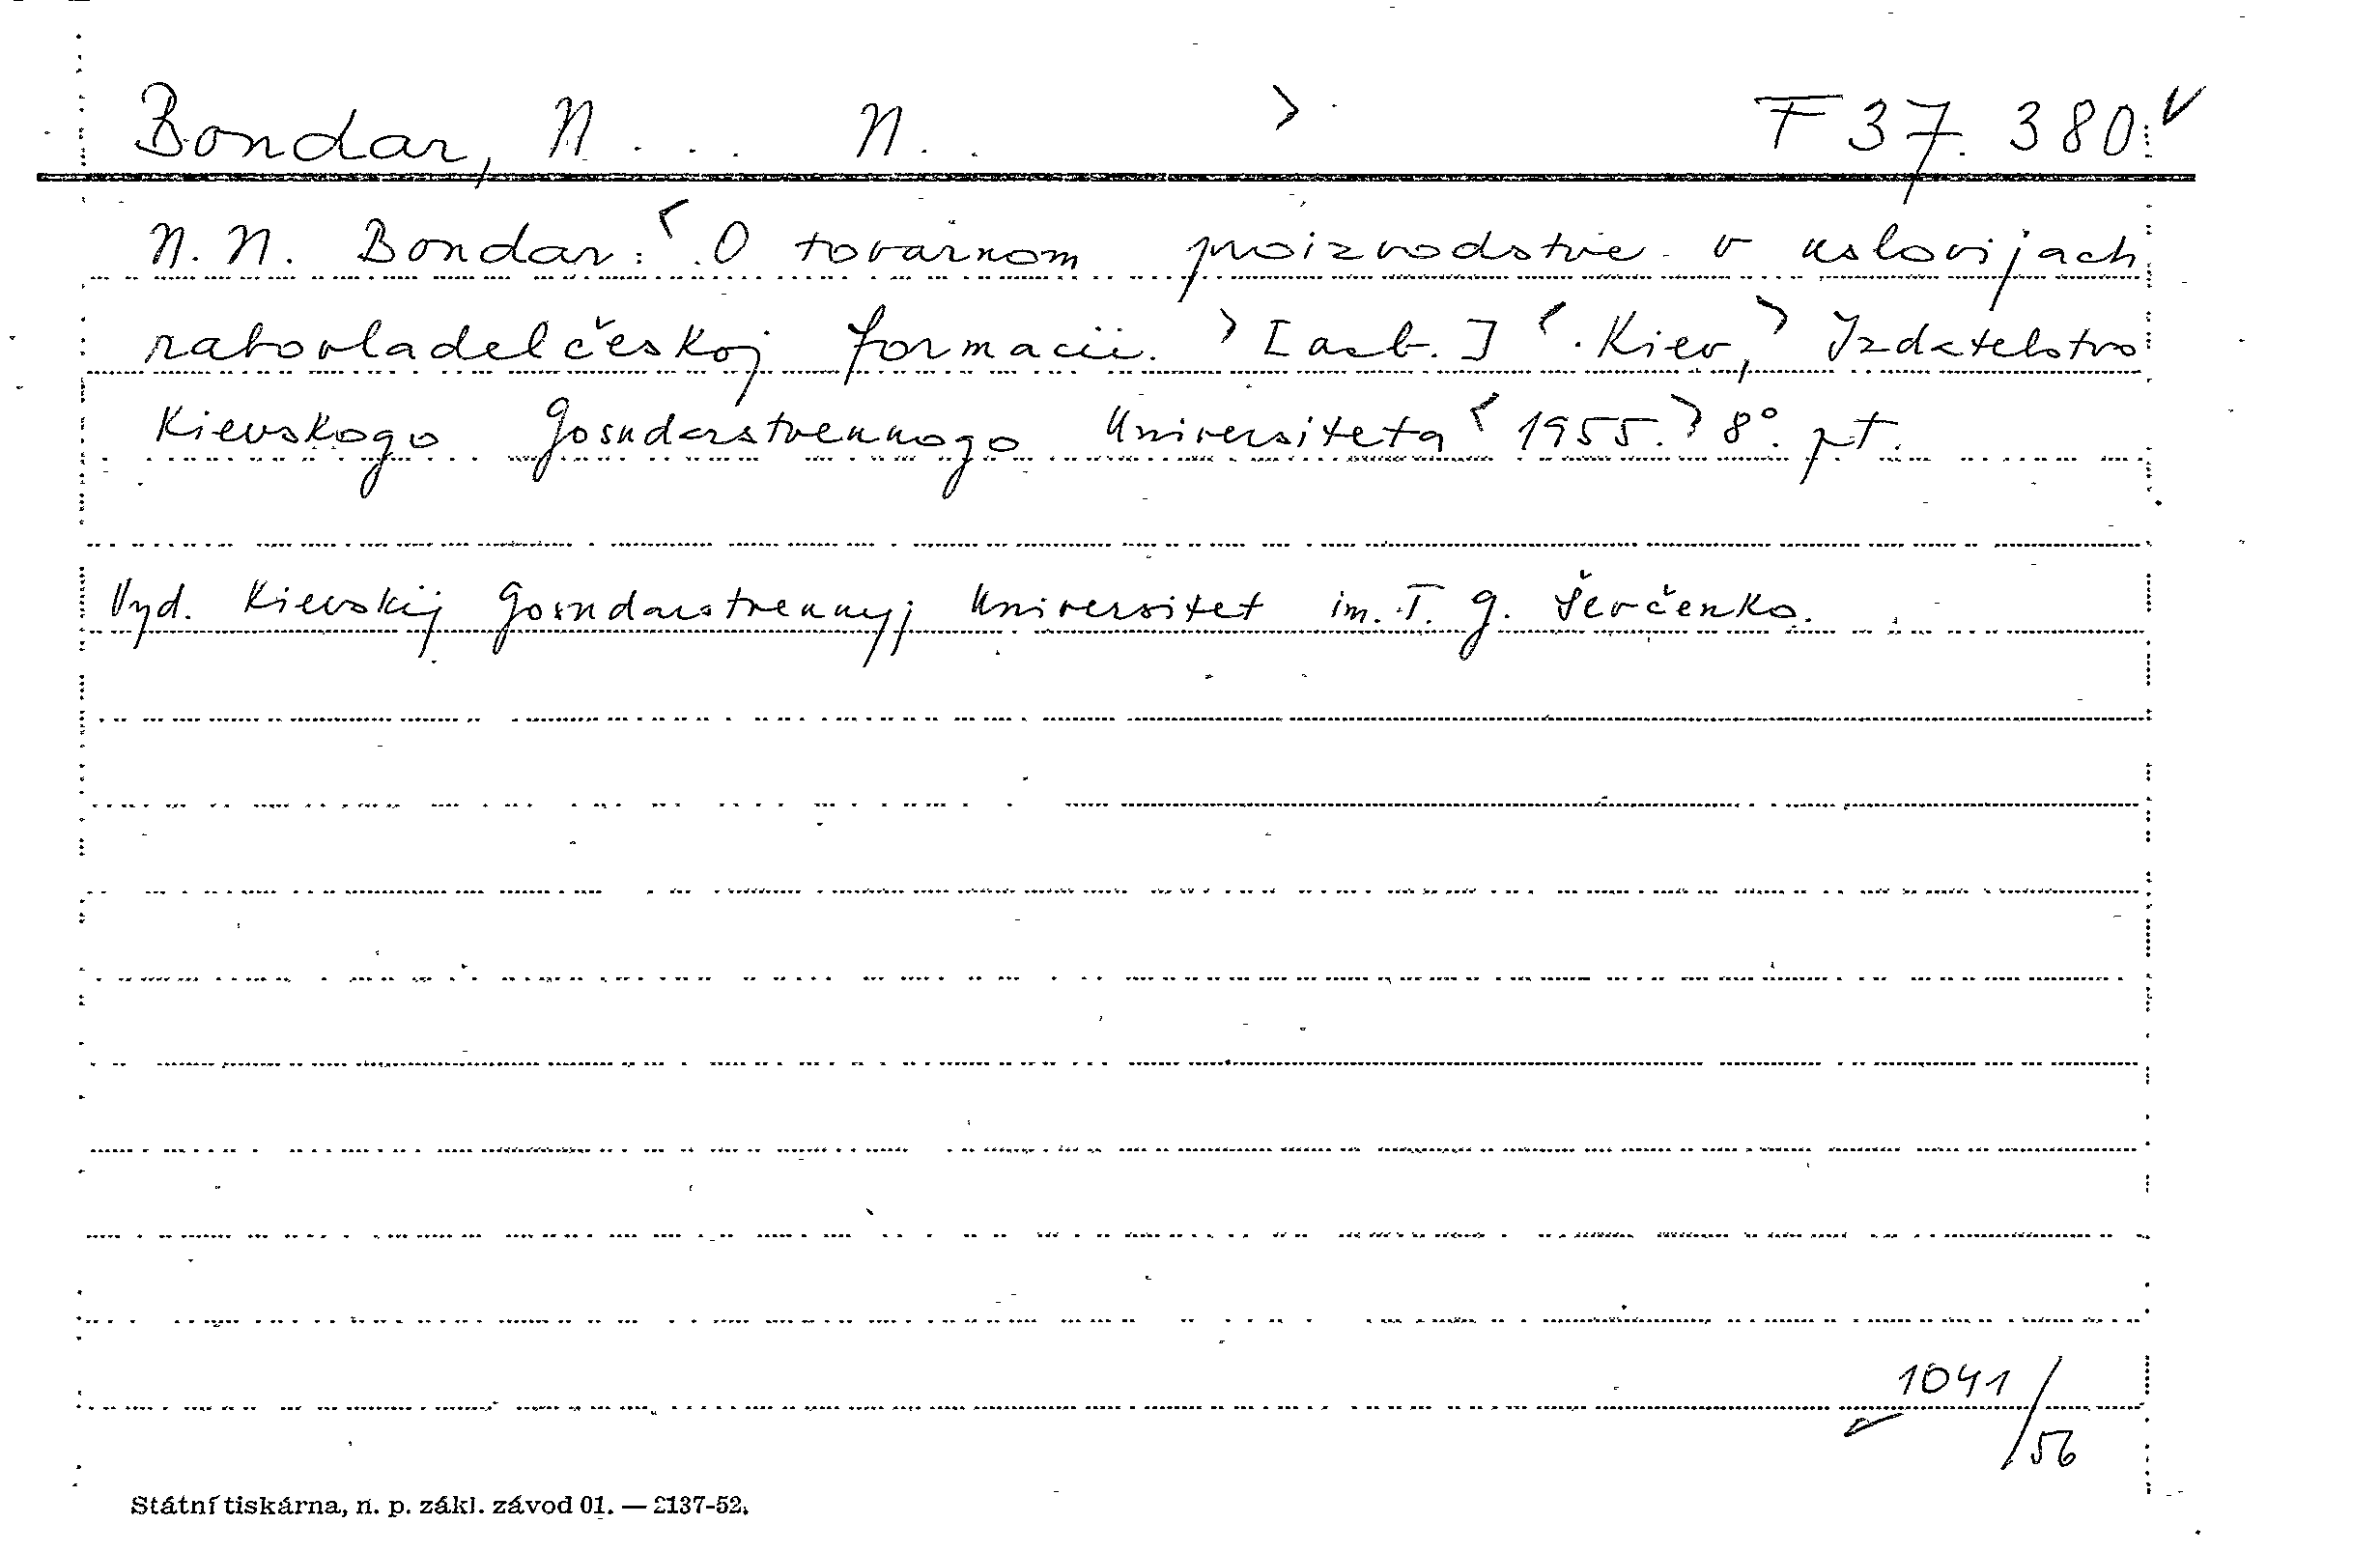 Bondar, N... N.. > F 37.380. ✓
N. N. Bondar: < O tovarnom proizvodstve v uslovijach
rabovladelčeskoj formacii. > [azb.] < Kiev, > Izdatelstvo
Kievskogo Gosudarstvennogo Universiteta < 1955. > 8°. pt.
Vyd. Kievskij Gosudarstvennyj Universitet im. T. G. Ševčenko.
1041/56
Státní tiskárna, n. p. zákl. závod 01. — 2137-52.